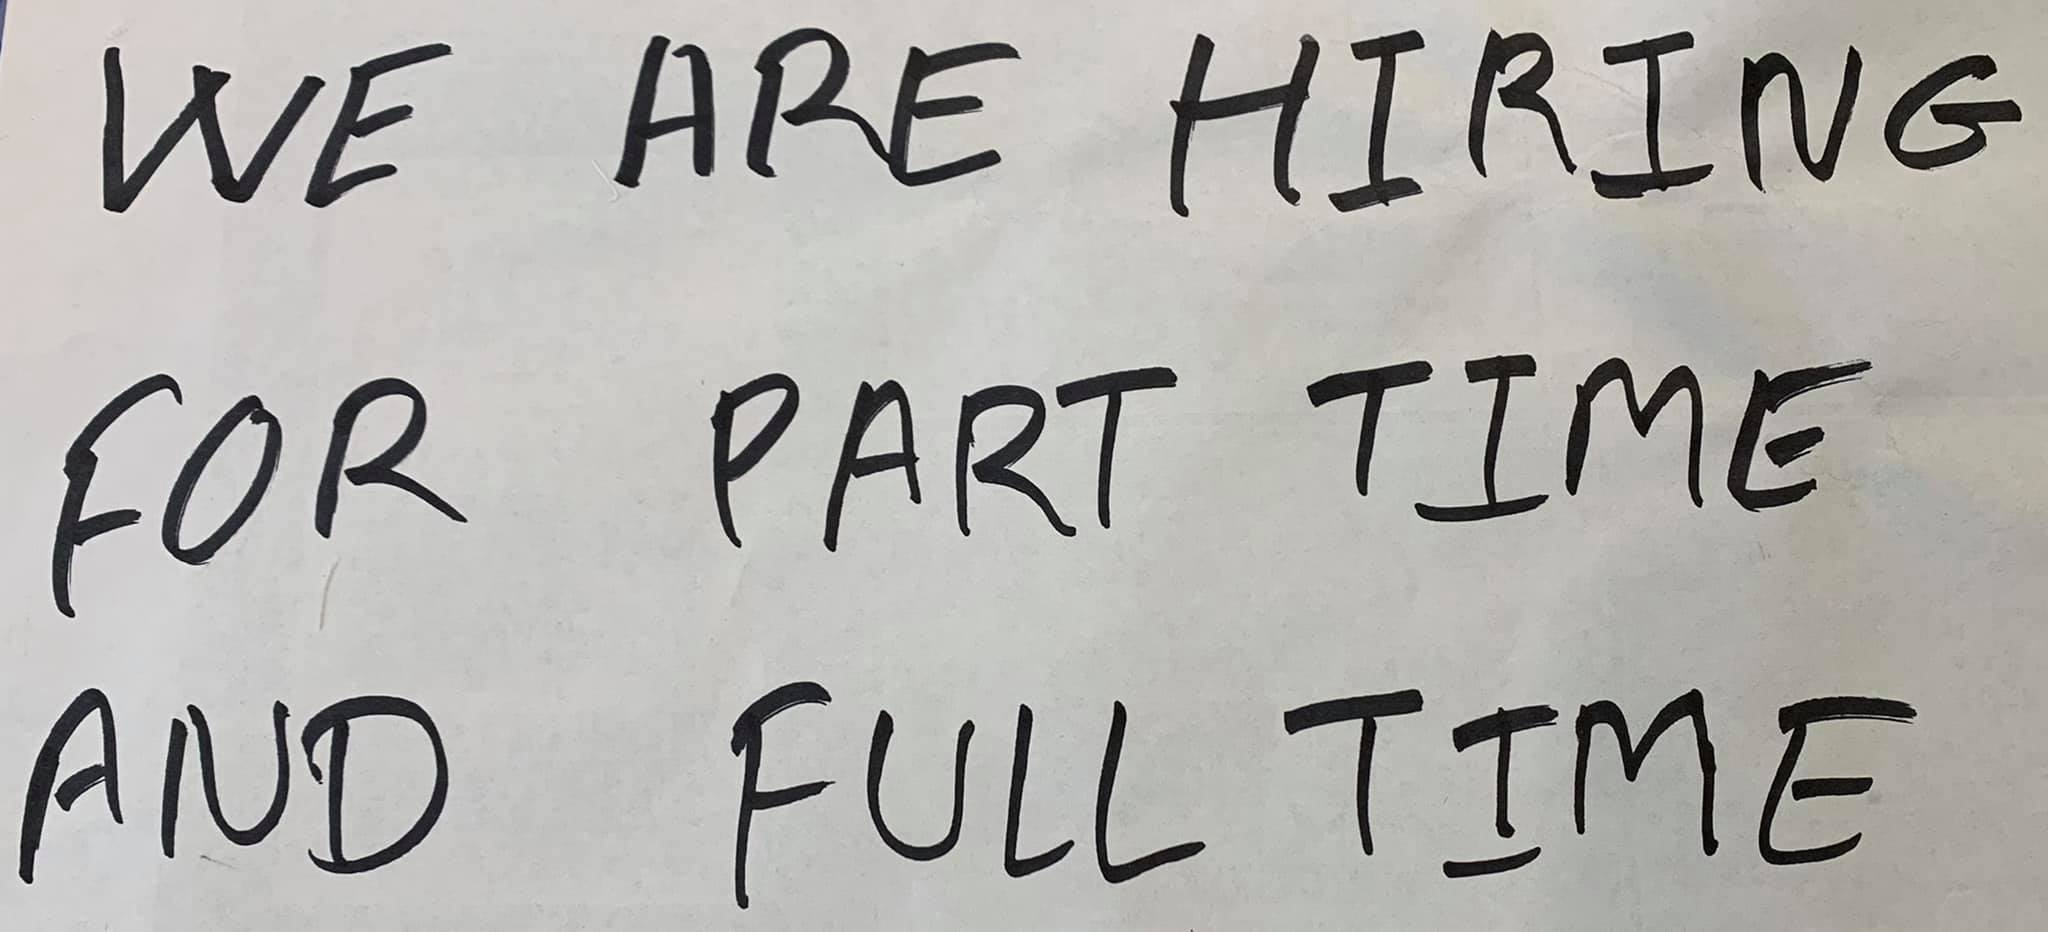 WE ARE HIRING
FOR PART TIME
AND FULL TIME